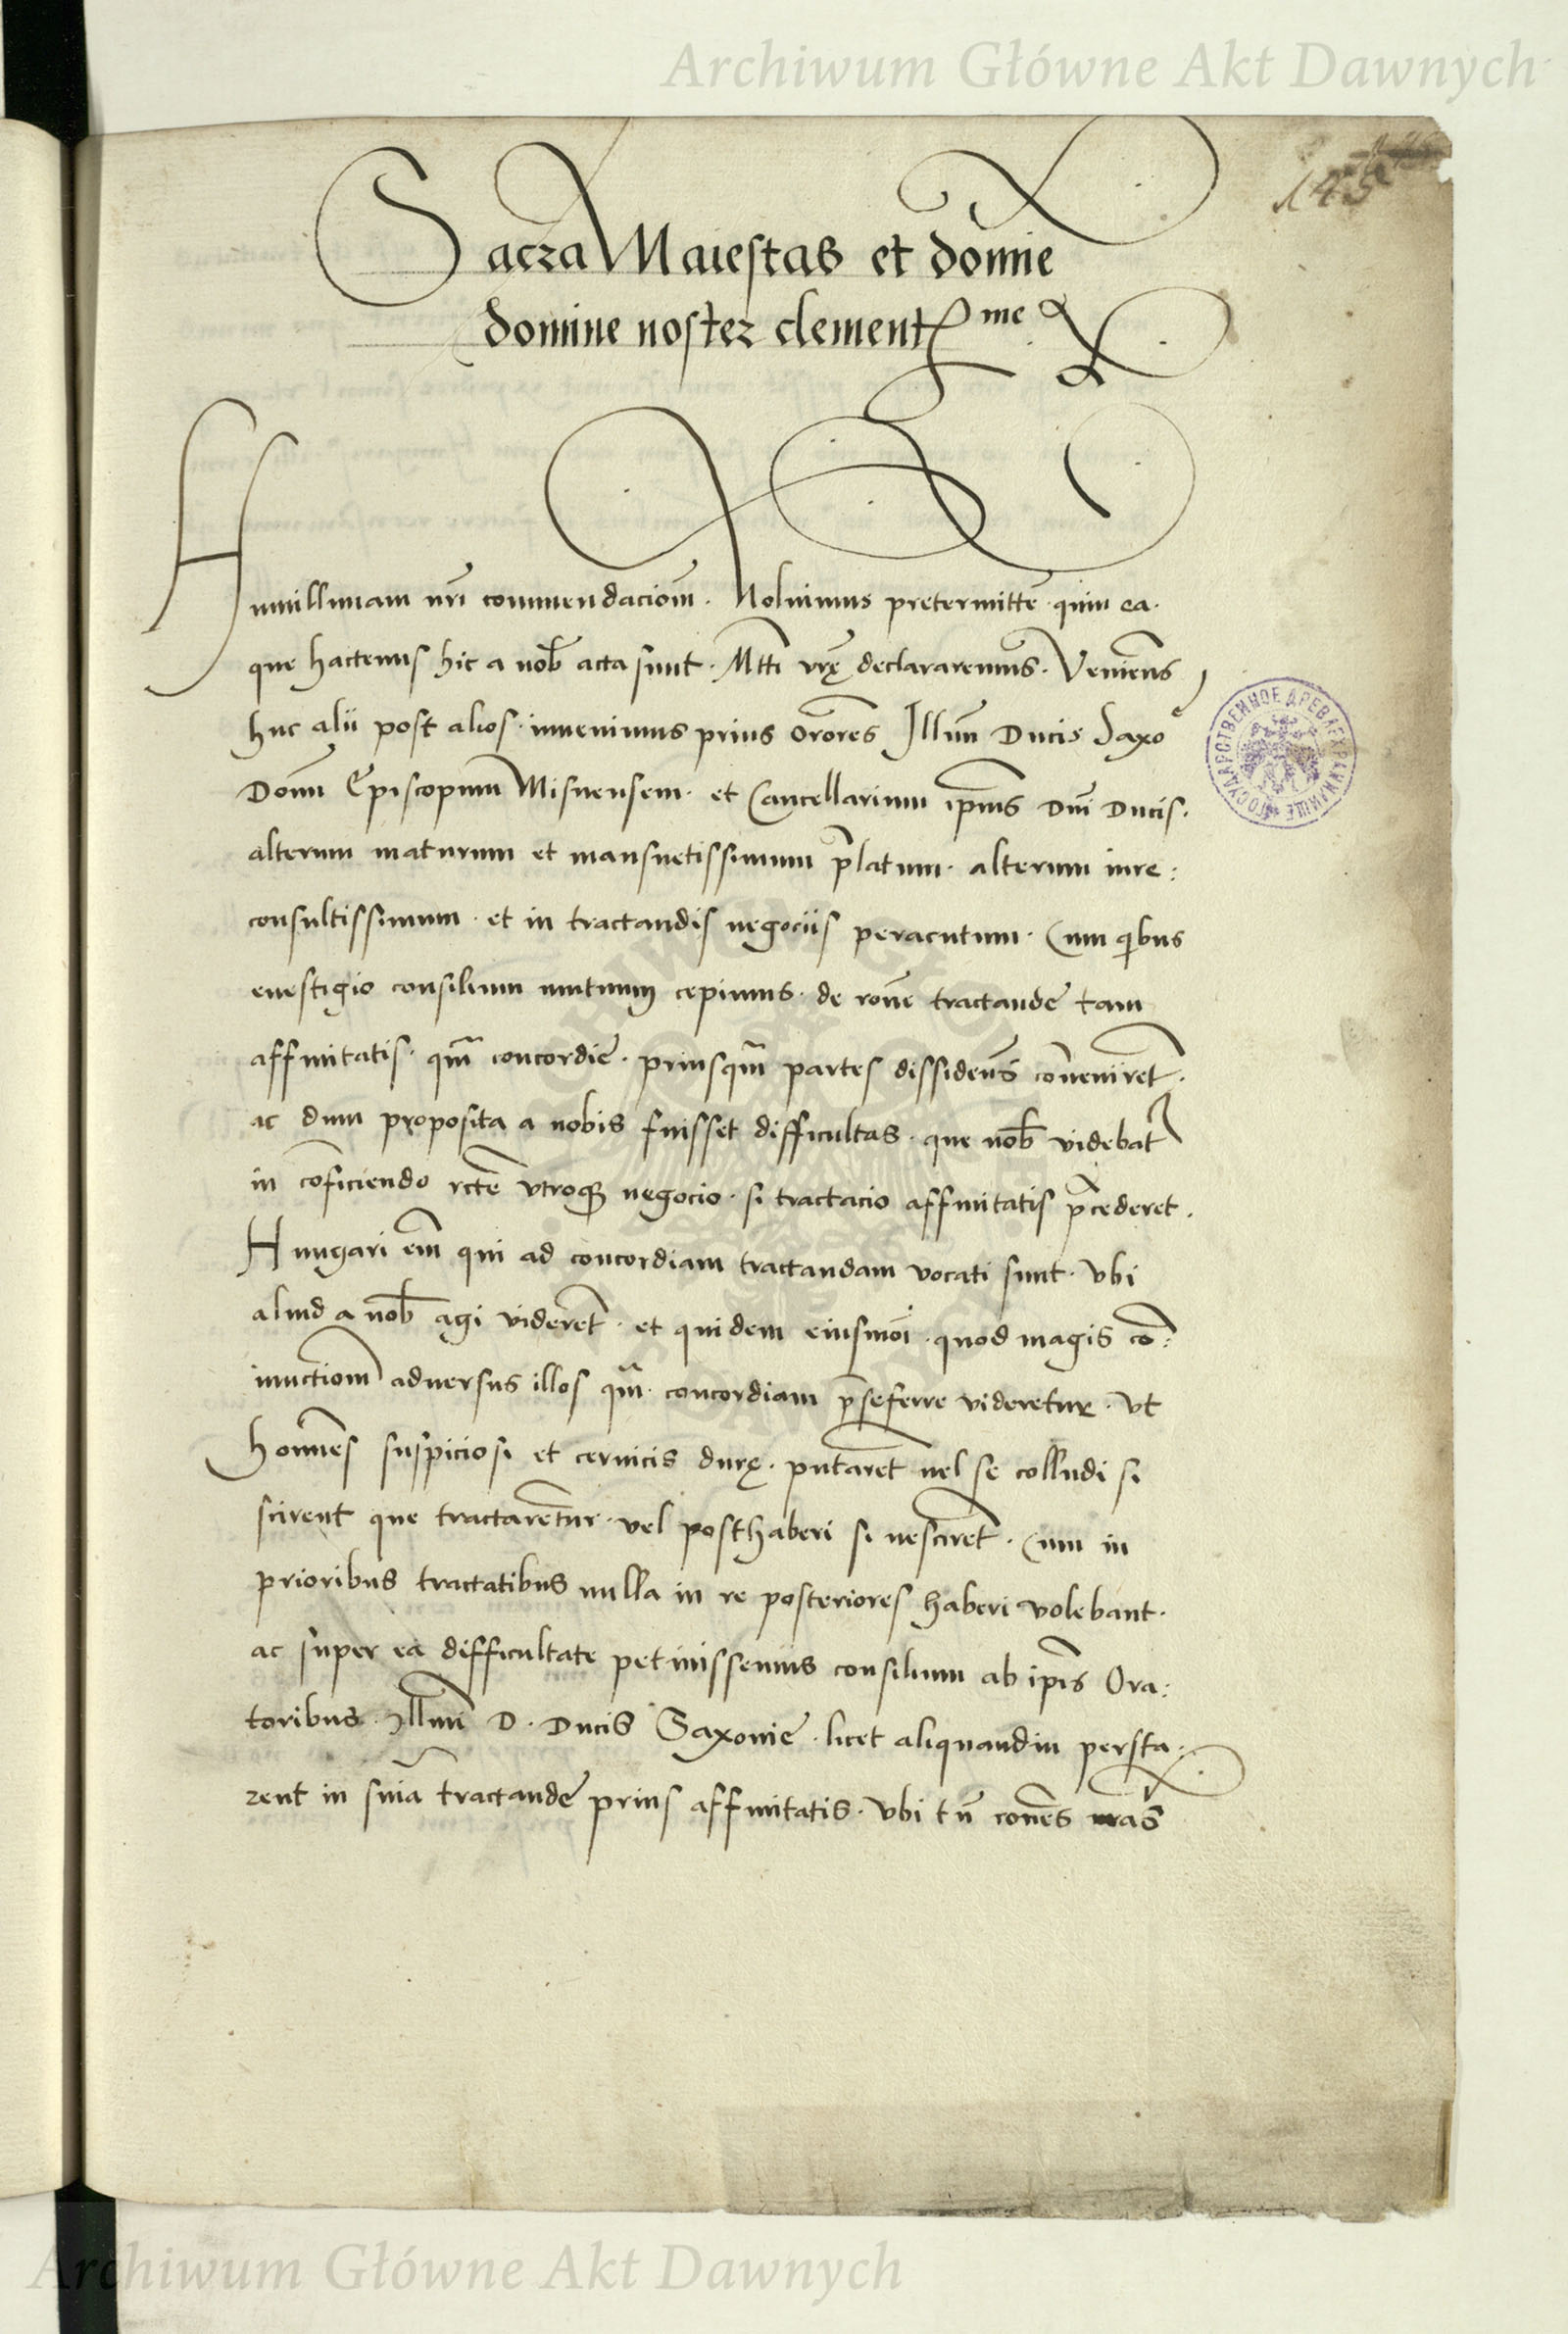 Archiwum Główne Akt Dawnych
145
Sacra Maiestas et domine
domine noster clementme
Humillimam nrī commendacioēm. Noluimus pretermitte quin ea.
que hactenus hic a nob acta sunt. Mtti vrę declararemus. Veniens
huc alii post alios. invenimus prius orores Illum Ducis Saxoe
Domn Episcopum Misnensem. et Cancellarium ipius Dni Ducis.
alterum maturum et mansuetissimum platum. alterum iure:
consultissimum. et in tractandis negociis peracutum. Cum qibus
evestigio consilium mutuum cepimus. de rone tractande tam
affinitatis. qm concordie. priusqm partes dissidens conveniret.
ac dum proposita a nobis fuisset difficultas. que nob videbat
in conficiendo rcte utroque negocio. si tractacio affinitatis pcederet.
Hungari em qui ad concordiam tractandam vocati sunt. Vbi
aliud a nob agi videret. et quidem eiusmoi. quod magis co:
iunctiom adversus illos qm. concordiam pseferre videretur. Vt
homines suspiciosi et cervicis durę. putaret vel se colludi si
scirent que tractarentur. vel posthaberi si nesciret. Cum in
prioribus tractatibus nulla in re posteriores haberi volebant.
ac super ea difficultate petivissemus consilium ab ipis Ora:
toribus. Illmi D. Ducis Saxonie. licet aliquandiu persta:
rent in snia tractande prius affinitatis. Vbi tn rones nras
ГОСУДАРСТВЕННОЕ ДРЕВЛЕХРАНИЛИЩЕ
Archiwum Główne Akt Dawnych